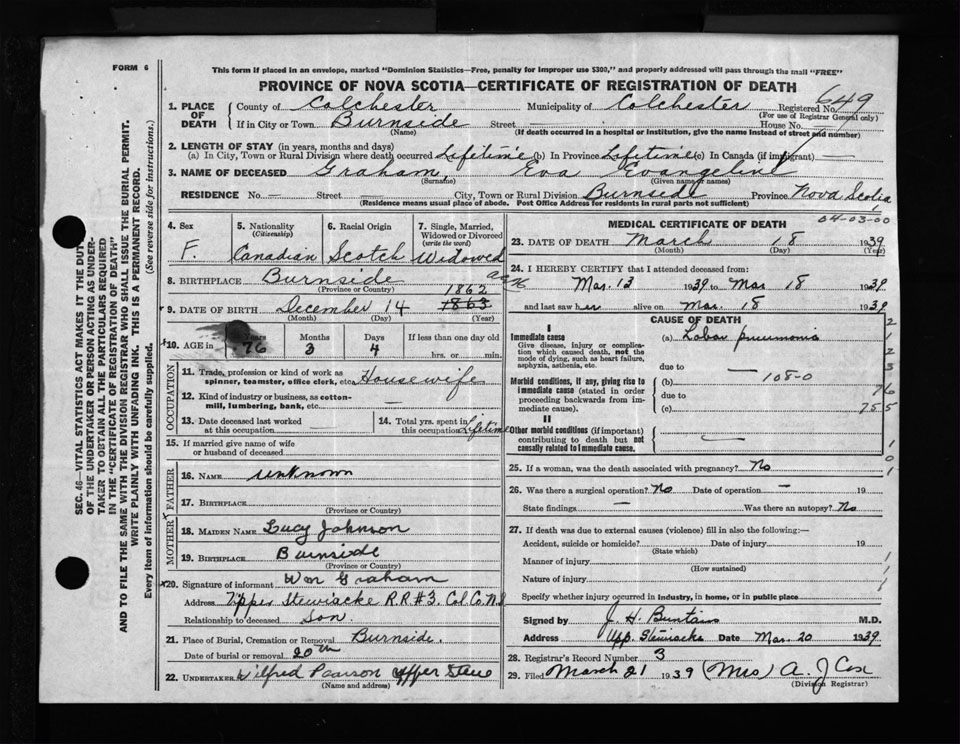 FORM 6
This form if placed in an envelope, marked "Dominion Statistics—Free, penalty for improper use $300," and properly addressed will pass through the mail "FREE"
PROVINCE OF NOVA SCOTIA—CERTIFICATE OF REGISTRATION OF DEATH
1. PLACE OF DEATH
County of Colchester Municipality of Colchester Registered No. 649
(For use of Registrar General only)
If in City or Town Burnside Street — House No. —
(Name) (If death occurred in a hospital or institution, give the name instead of street and number)
2. LENGTH OF STAY (in years, months and days)
(a) In City, Town or Rural Division where death occurred Lifetime (b) In Province Lifetime (c) In Canada (if immigrant) —
3. NAME OF DECEASED Graham, Eva Evangeline
(Surname) (Given name or names)
RESIDENCE No. — Street — City, Town or Rural Division Burnside Province Nova Scotia
(Residence means usual place of abode. Post Office Address for residents in rural parts not sufficient)
04-03-00
4. Sex F.
5. Nationality (Citizenship) Canadian
6. Racial Origin Scotch
7. Single, Married, Widowed or Divorced (write the word) Widowed
8. BIRTHPLACE Burnside
(Province or Country)
1862
9. DATE OF BIRTH December 14 1863
(Month) (Day) (Year)
10. AGE in Years 76 Months 3 Days 4 If less than one day
hrs. or min.
OCCUPATION
11. Trade, profession or kind of work as spinner, teamster, office clerk, etc. Housewife
12. Kind of industry or business, as cotton-mill, lumbering, bank, etc. —
13. Date deceased last worked at this occupation —
14. Total yrs. spent in this occupation Lifetime
15. If married give name of wife or husband of deceased
FATHER
16. NAME unknown
17. BIRTHPLACE —
(Province or Country)
MOTHER
18. MAIDEN NAME Lucy Johnson
19. BIRTHPLACE Burnside
(Province or Country)
20. Signature of informant Wm Graham
Address Upper Stewiacke R.R #3. Col Co. N.S
Relationship to deceased Son.
21. Place of Burial, Cremation or Removal Burnside.
Date of burial or removal 20th
22. UNDERTAKER Wilfred Pearson Upper Stew
(Name and address)
MEDICAL CERTIFICATE OF DEATH
23. DATE OF DEATH March 18 1939
(Month) (Day)
24. I HEREBY CERTIFY that I attended deceased from:
Mar. 13 1939 to Mar 18 1939
and last saw her alive on Mar. 18 1939
CAUSE OF DEATH
I
Immediate cause
Give disease, injury or complication which caused death, not the mode of dying, such as heart failure, asphyxia, asthenia, etc.
(a) Lobar pneumonia
due to
Morbid conditions, if any, giving rise to immediate cause (stated in order proceeding backwards from immediate cause).
(b) — 108-0
due to
(c)
76
755
II
Other morbid conditions (if important) contributing to death but not causally related to immediate cause.
25. If a woman, was the death associated with pregnancy? No
26. Was there a surgical operation? No Date of operation — 19
State findings — Was there an autopsy? No
27. If death was due to external causes (violence) fill in also the following:—
Accident, suicide or homicide? Date of injury 19
(State which)
Manner of injury
(How sustained)
Nature of injury
Specify whether injury occurred in industry, in home, or in public place
Signed by J. H. Buntain M.D.
Address Upp. Stewiacke Date Mar. 20 1939
28. Registrar's Record Number 3
29. Filed March 21 1939 (Mrs) A. J Cox
(Division Registrar)
SEC. 46—VITAL STATISTICS ACT MAKES IT THE DUTY
OF THE UNDERTAKER OR PERSON ACTING AS UNDER-
TAKER TO OBTAIN ALL THE PARTICULARS REQUIRED
IN THE "CERTIFICATE OF REGISTRATION OF DEATH"
AND TO FILE THE SAME WITH THE DIVISION REGISTRAR WHO SHALL ISSUE THE BURIAL PERMIT.
WRITE PLAINLY WITH UNFADING INK. THIS IS A PERMANENT RECORD.
Every item of information should be carefully supplied. (See reverse side for instructions.)